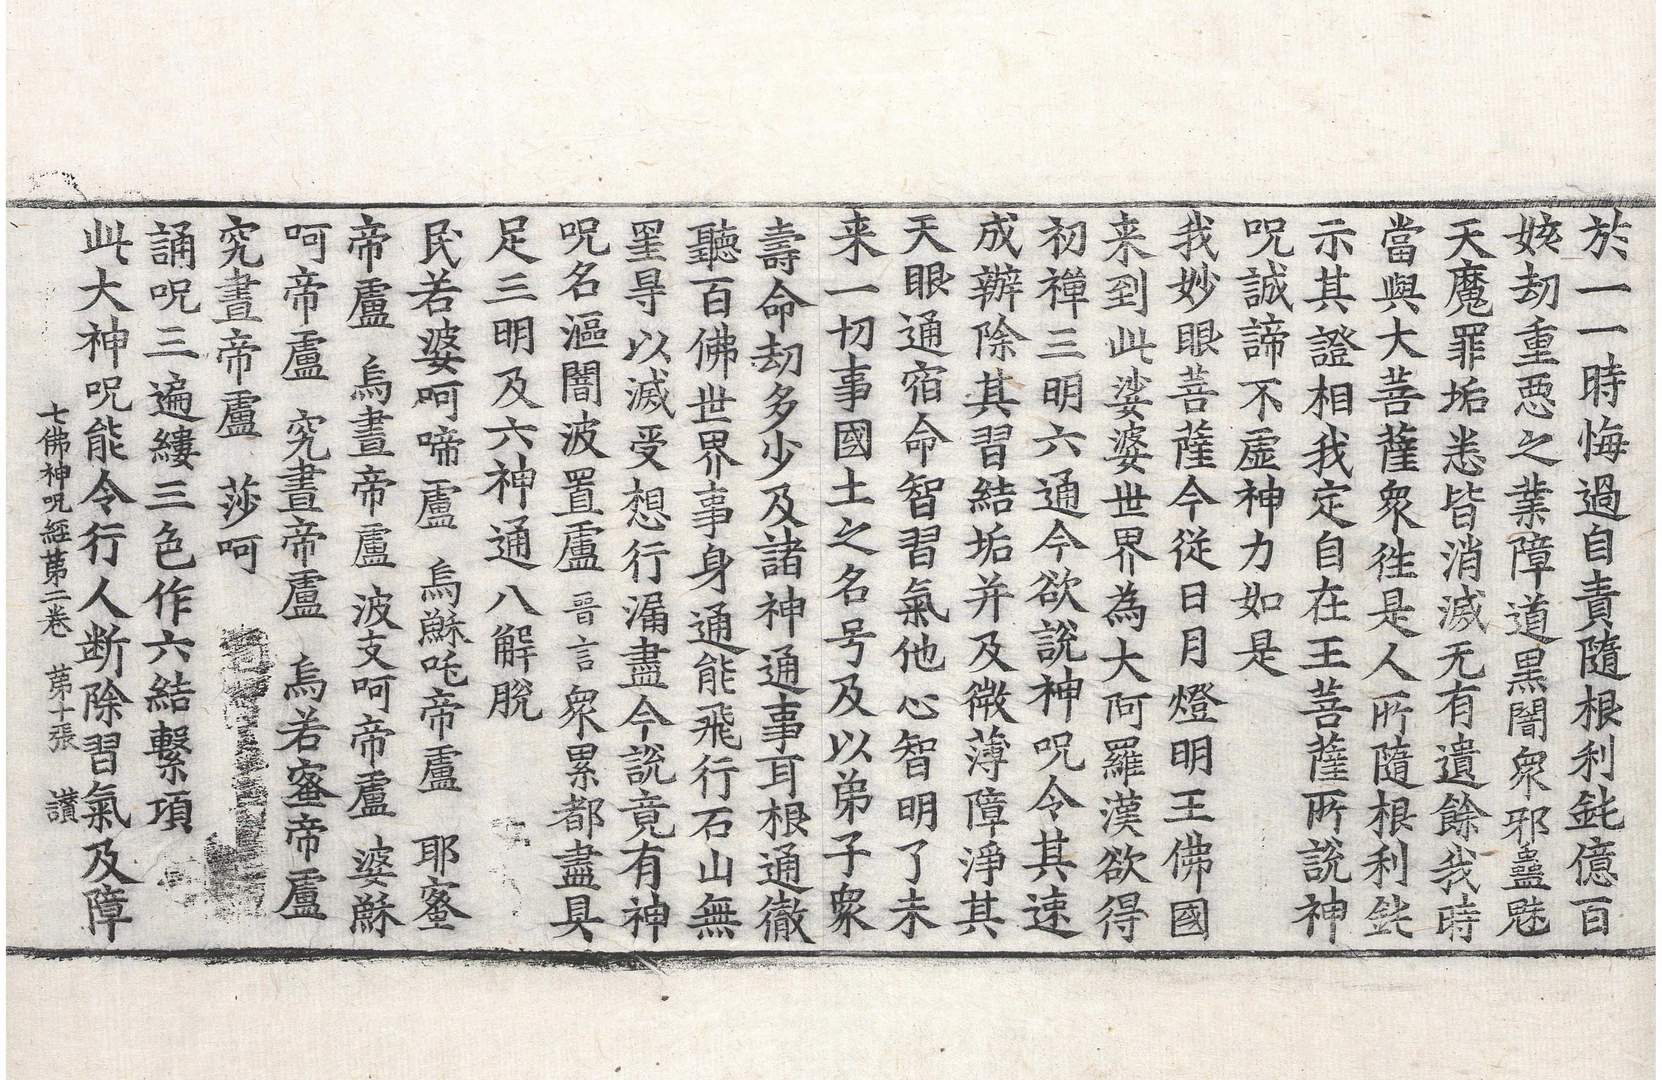 於一一時悔過自責隨根利鈍億百
姟劫重惡之業障道黑闇衆邪蠱魅
天魔罪垢悉皆消滅无有遺餘我時
當與大菩薩衆徃是人所隨根利鈍
示其證相我定自在王菩薩所說神
呪誠諦不虛神力如是
我妙眼菩薩今從日月燈明王佛國
来到此娑婆世界為大阿羅漢欲得
初禪三明六通今欲說神呪令其速
成辦除其習結垢并及微薄障淨其
天眼通宿命智習氣他心智明了未
来一切事國土之名号及以弟子衆
壽命劫多少及諸神通事耳根通徹
聽百佛世界事身通能飛行石山無
罣㝵以滅受想行漏盡今說竟有神
呪名漚闍波置盧 晉言 衆累都盡具
足三明及六神通八解脫
民若婆呵啼盧 烏蘇吒帝盧 耶蜜
帝盧 烏晝帝盧 波支呵帝盧 婆蘇
呵帝盧 究晝帝盧 烏若蜜帝盧
究晝帝盧 莎呵
誦呪三遍縷三色作六結繫項
此大神呪能令行人断除習氣及障
七佛神呪經苐二卷 苐十張 讃